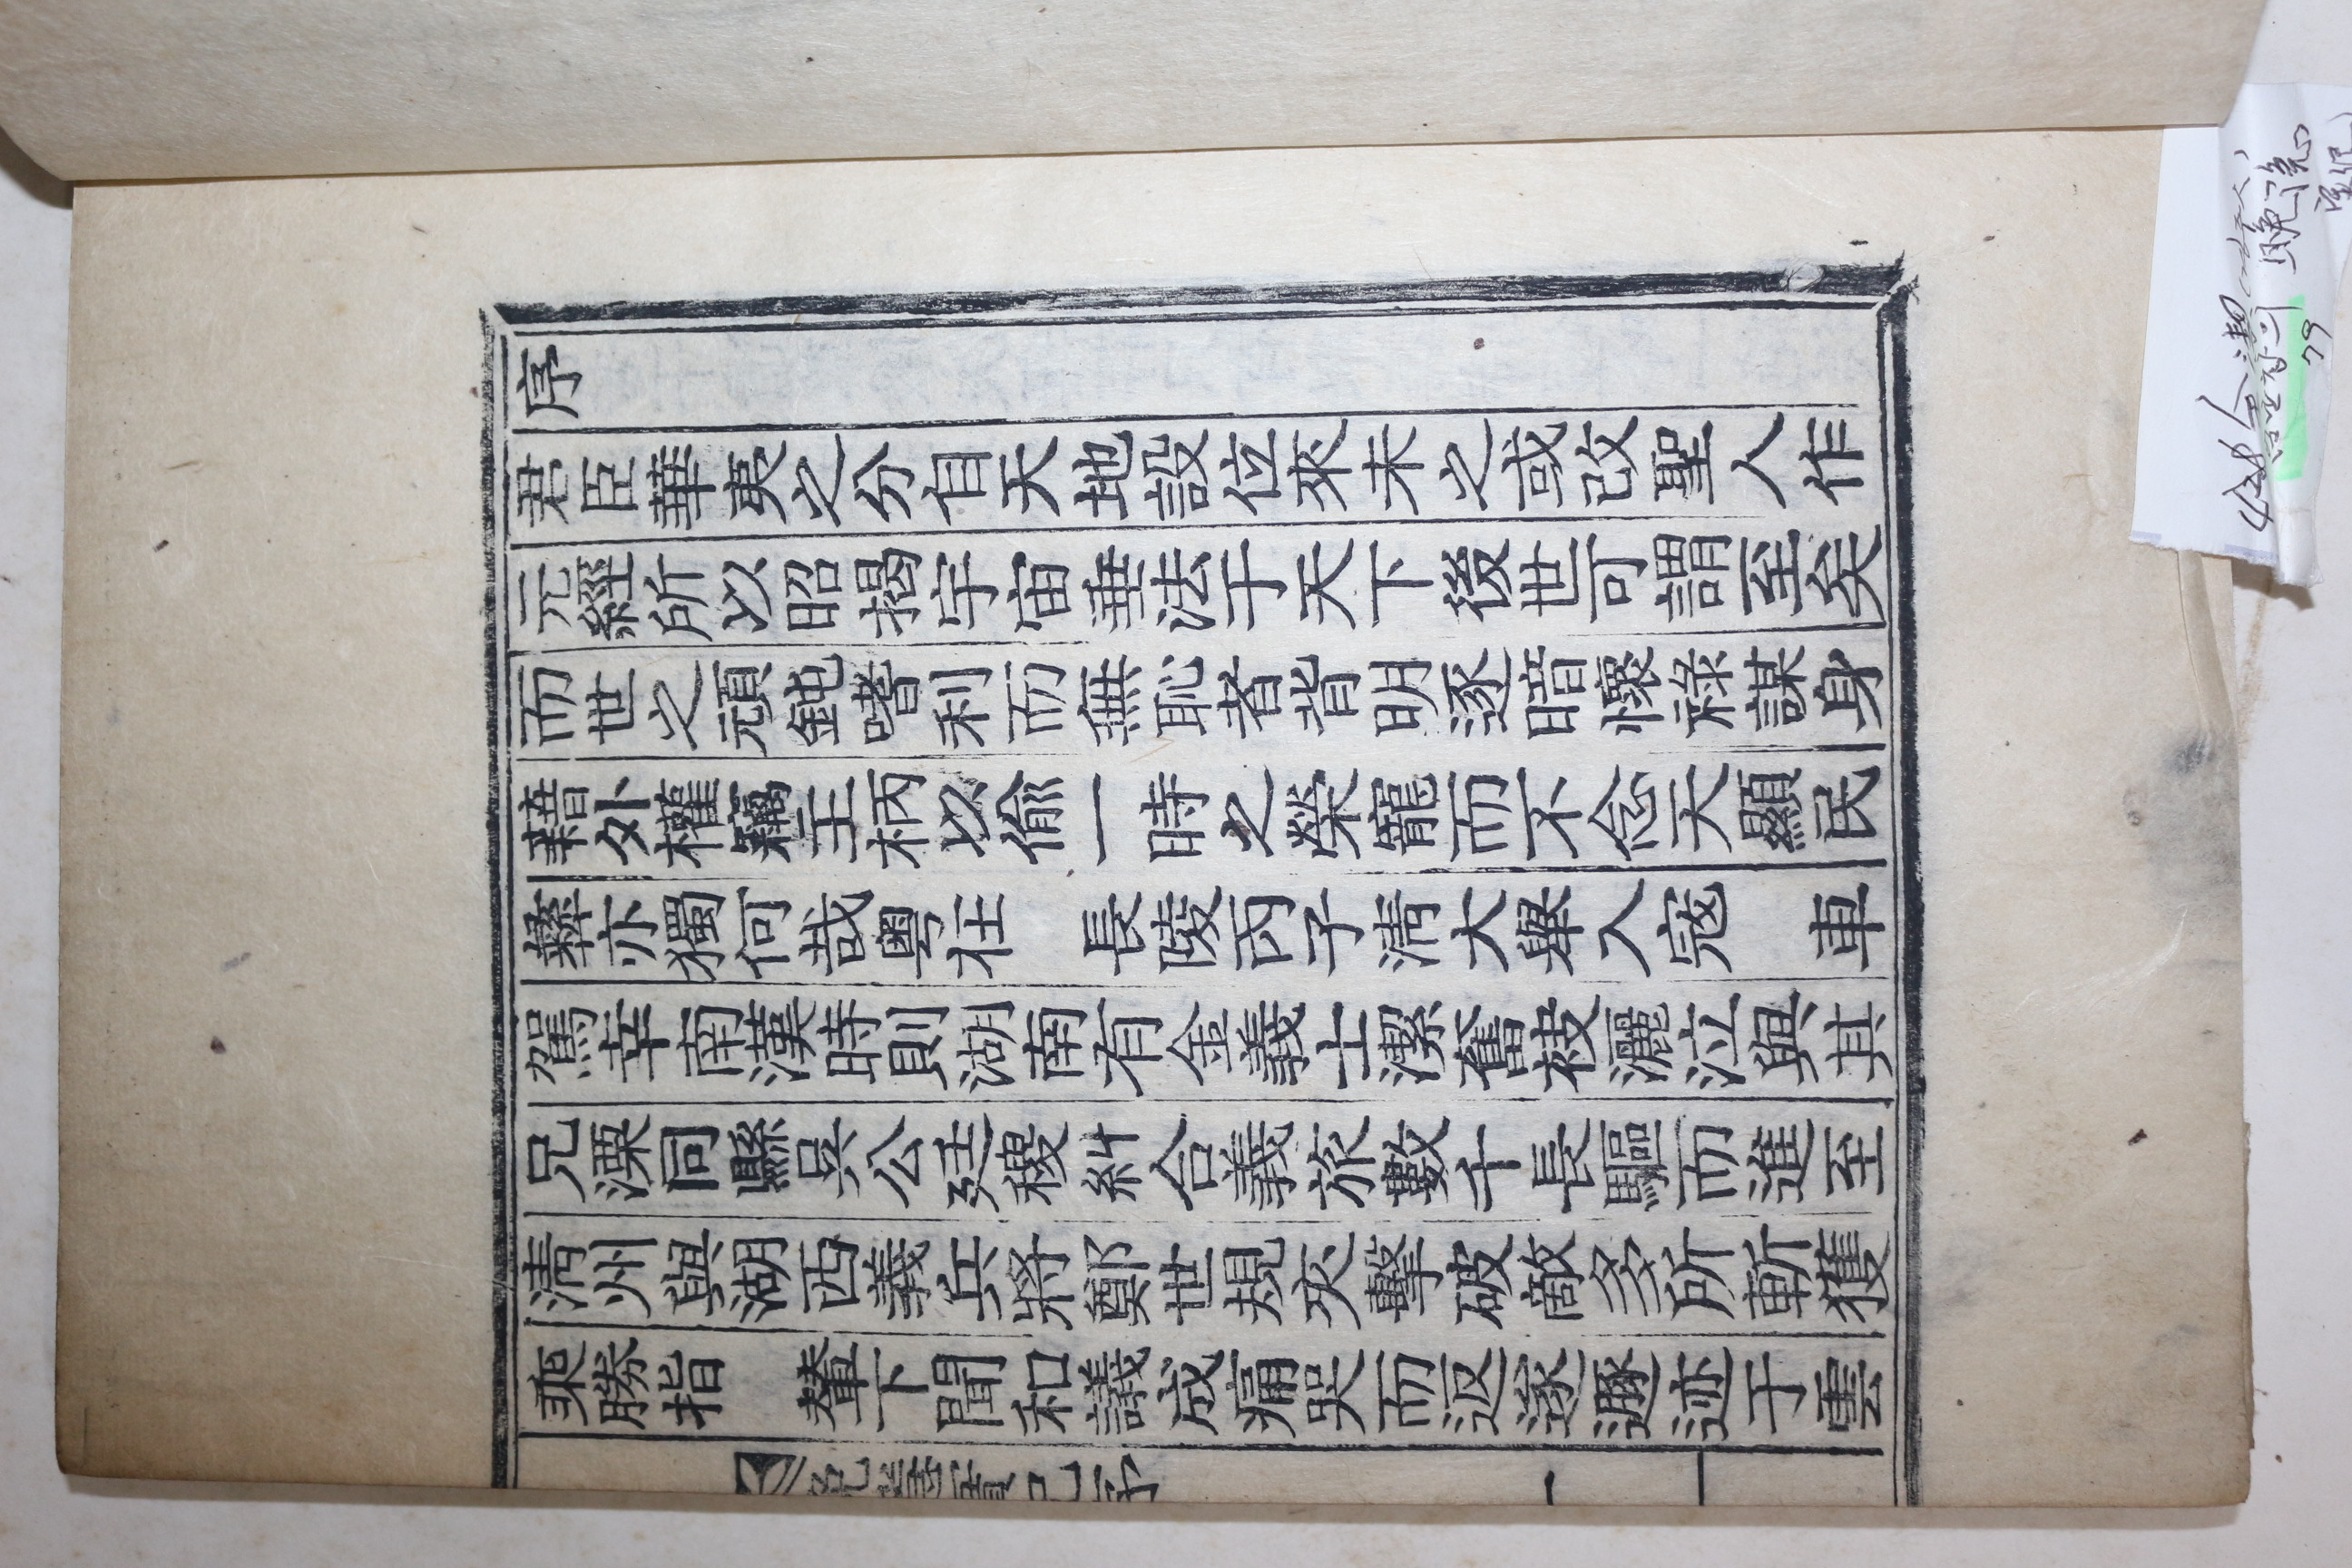 序
君臣華夷之分自天地設位來未之或改聖人作
元經所以昭揭宇宙垂法于天下後世可謂至矣
而世之頑鈍嗜利而無恥者背明逐暗懷祿謀身
藉外權竊王柄以偸一時之榮寵而不念天顯民
彝亦獨何哉粤在 長陵丙子淸大擧入寇 車
駕幸南漢時則湖南有金義士潗奮袂灑泣與其
兄溧同縣吳公廷稷糾合義旅數千長驅而進至
淸州與湖西義兵將鄭世規夾擊破敵多所斬獲
乘勝指 輦下聞和議成痛哭而返遂遯迹于雲
一
79